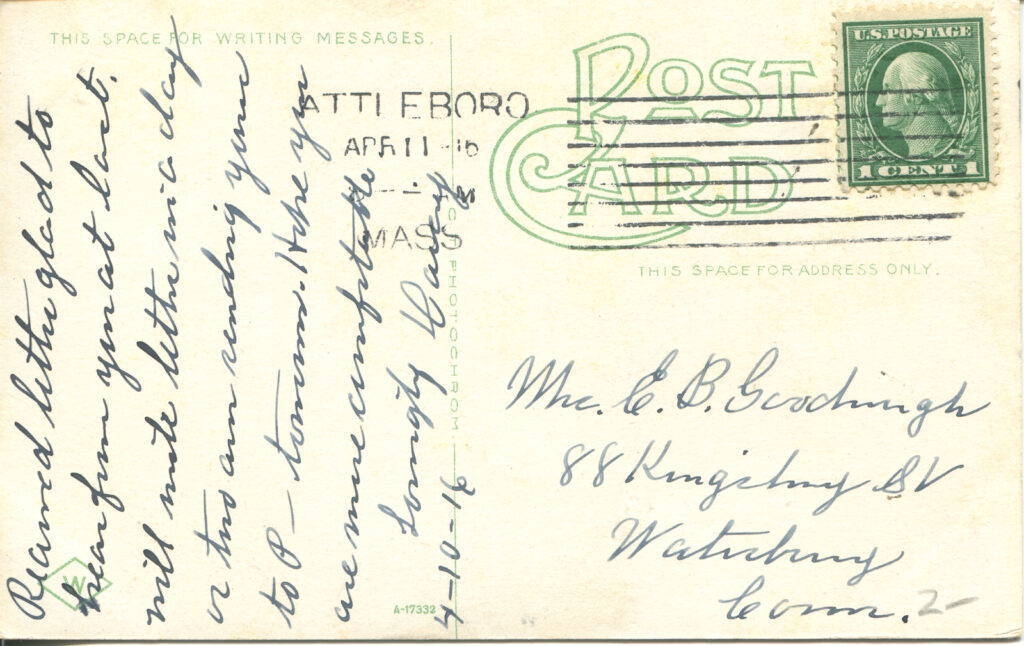 THIS SPACE FOR WRITING MESSAGES.
Received letter glad to
hear from you at last.
will write letter in a day
or two am sending yours
to P – tomorrow. Hope you
are more comfortable
Lovingly
4-10-16
ATTLEBORO
APR 11 16
M
MASS
PHOTOCHROM.
W
A-17332
POST
CARD
U.S. POSTAGE
1 CENT 1
THIS SPACE FOR ADDRESS ONLY.
E. B. Goodnough
88 Kingsbury St
Waterbury
Conn.
2-